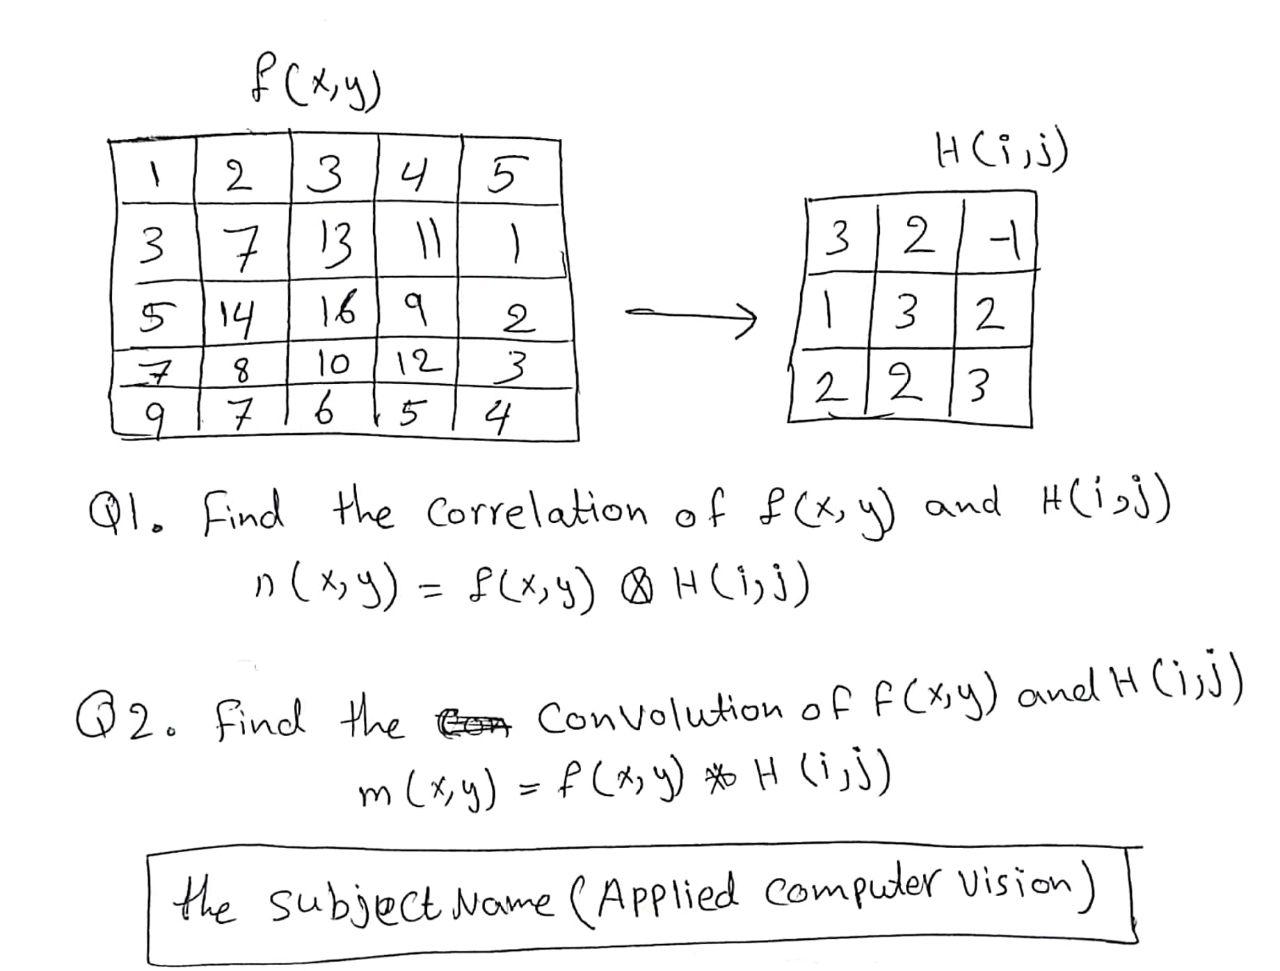 f(x,y)
H(i,j)
1 2 3 4 5
3 7 13 11 1
5 14 16 9 2
7 8 10 12 3
9 7 6 5 4
3 2 -1
1 3 2
2 2 3
Q1. Find the correlation of f(x,y) and H(i,j)
n(x,y) = f(x,y) ⊗ H(i,j)
Q2. Find the Convolution of f(x,y) and H(i,j)
m(x,y) = f(x,y) * H(i,j)
the subject Name (Applied computer Vision)